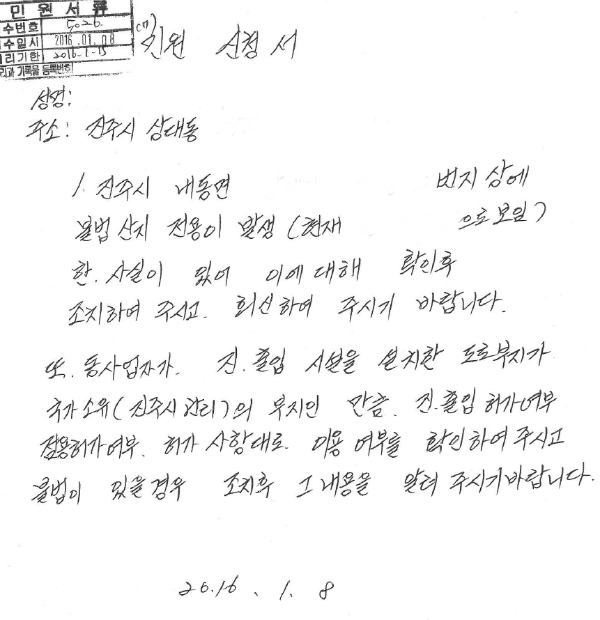 민원서류
수번호 5026
수일시 2016.01.08
리기한 2016-1-15
리과 기록물 등록번호
민원 신청서
성명:
주소: 진주시 상대동
1. 진주시 내동면 번지 상에
불법 산지 전용이 발생 (현재 으로 보임)
한. 사실이 있어 이에 대해 확인후
조치하여 주시고. 회신하여 주시기 바랍니다.
또. 동사업자가. 진.출입 시설을 설치한 도로부지가
국가소유(진주시 관리)의 부지인 만큼. 진.출입 허가여부
점용허가여부. 허가 사항대로. 이용 여부를 확인하여 주시고
불법이 있을경우 조치후 그 내용을 알려 주시기바랍니다.
2016. 1. 8